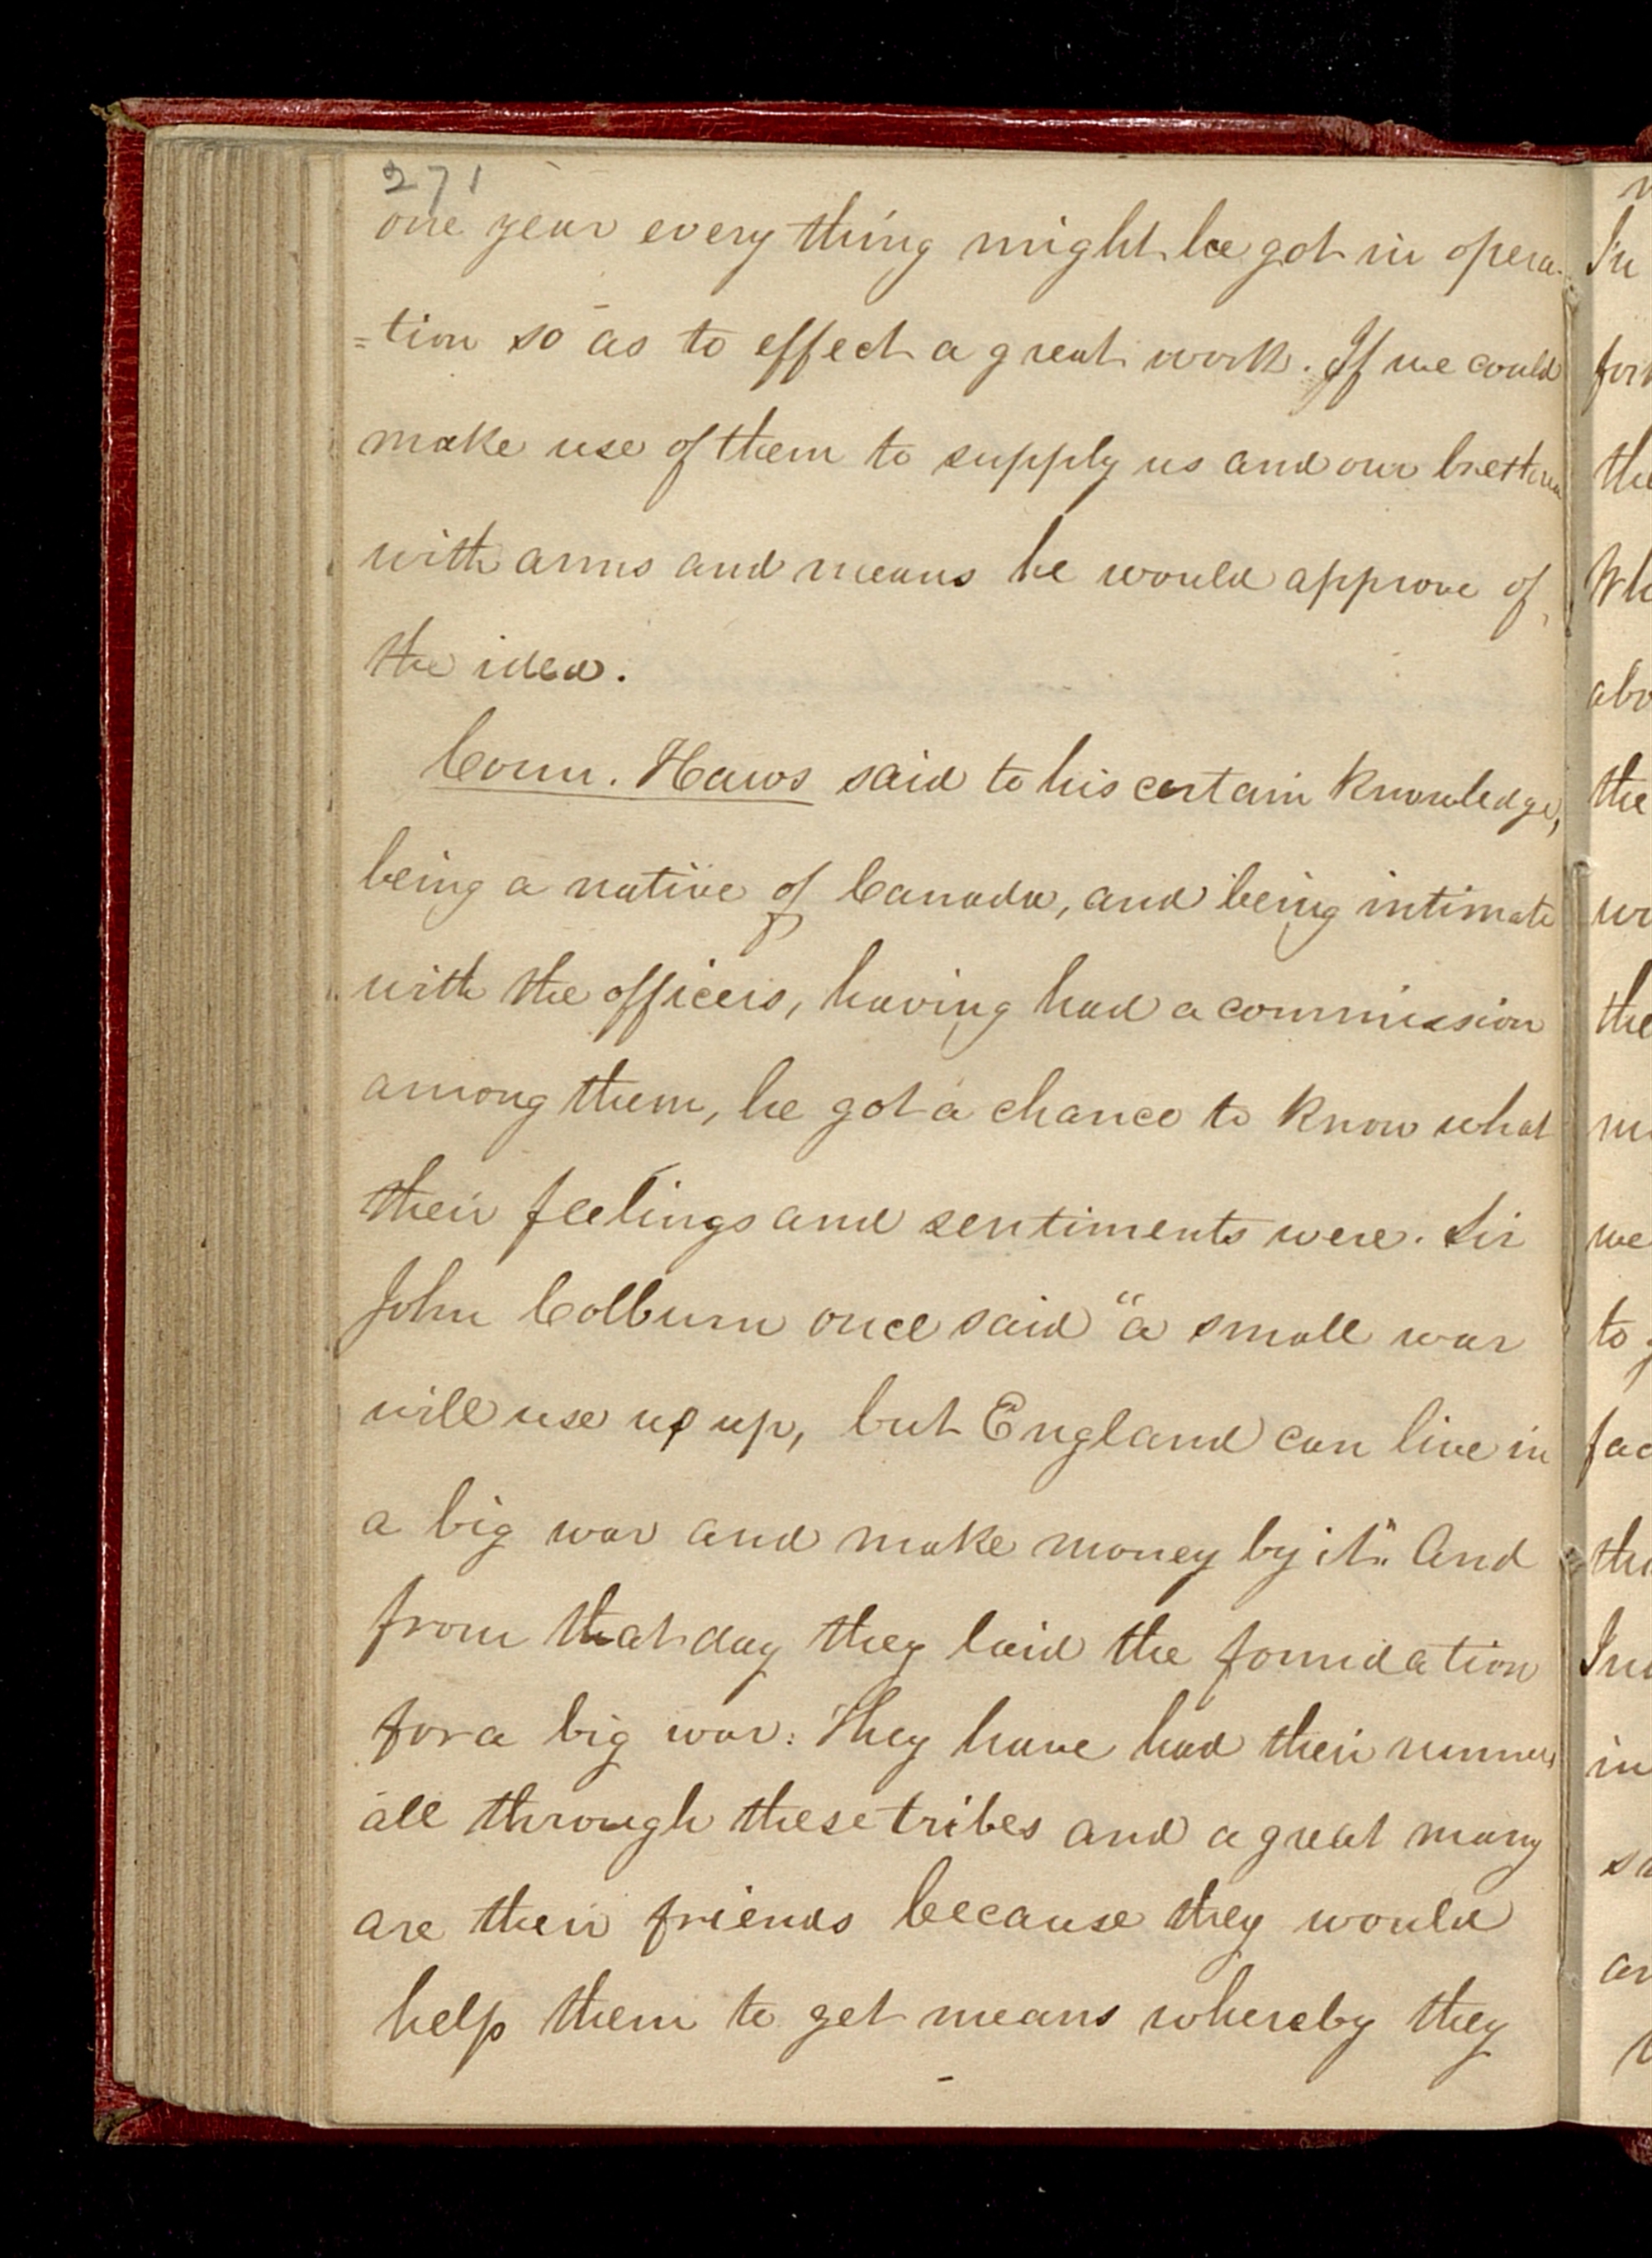 271
one year every thing might be got in opera-
=tion so as to effect a great work. If we could
make use of them to supply us and our brethren
with arms and means he would approve of
the idea.
Coun. Haws said to his certain knowledge,
being a native of Canada, and being intimate
with the officers, having had a commission
among them, he got a chance to know what
their feelings and sentiments were. Sir
John Colburn once said "a small war
will use up up, but England can live in
a big war and make money by it." And
from that day they laid the foundation
for a big war: They have had their runners
all through these tribes and a great many
are their friends because they would
help them to get means whereby they